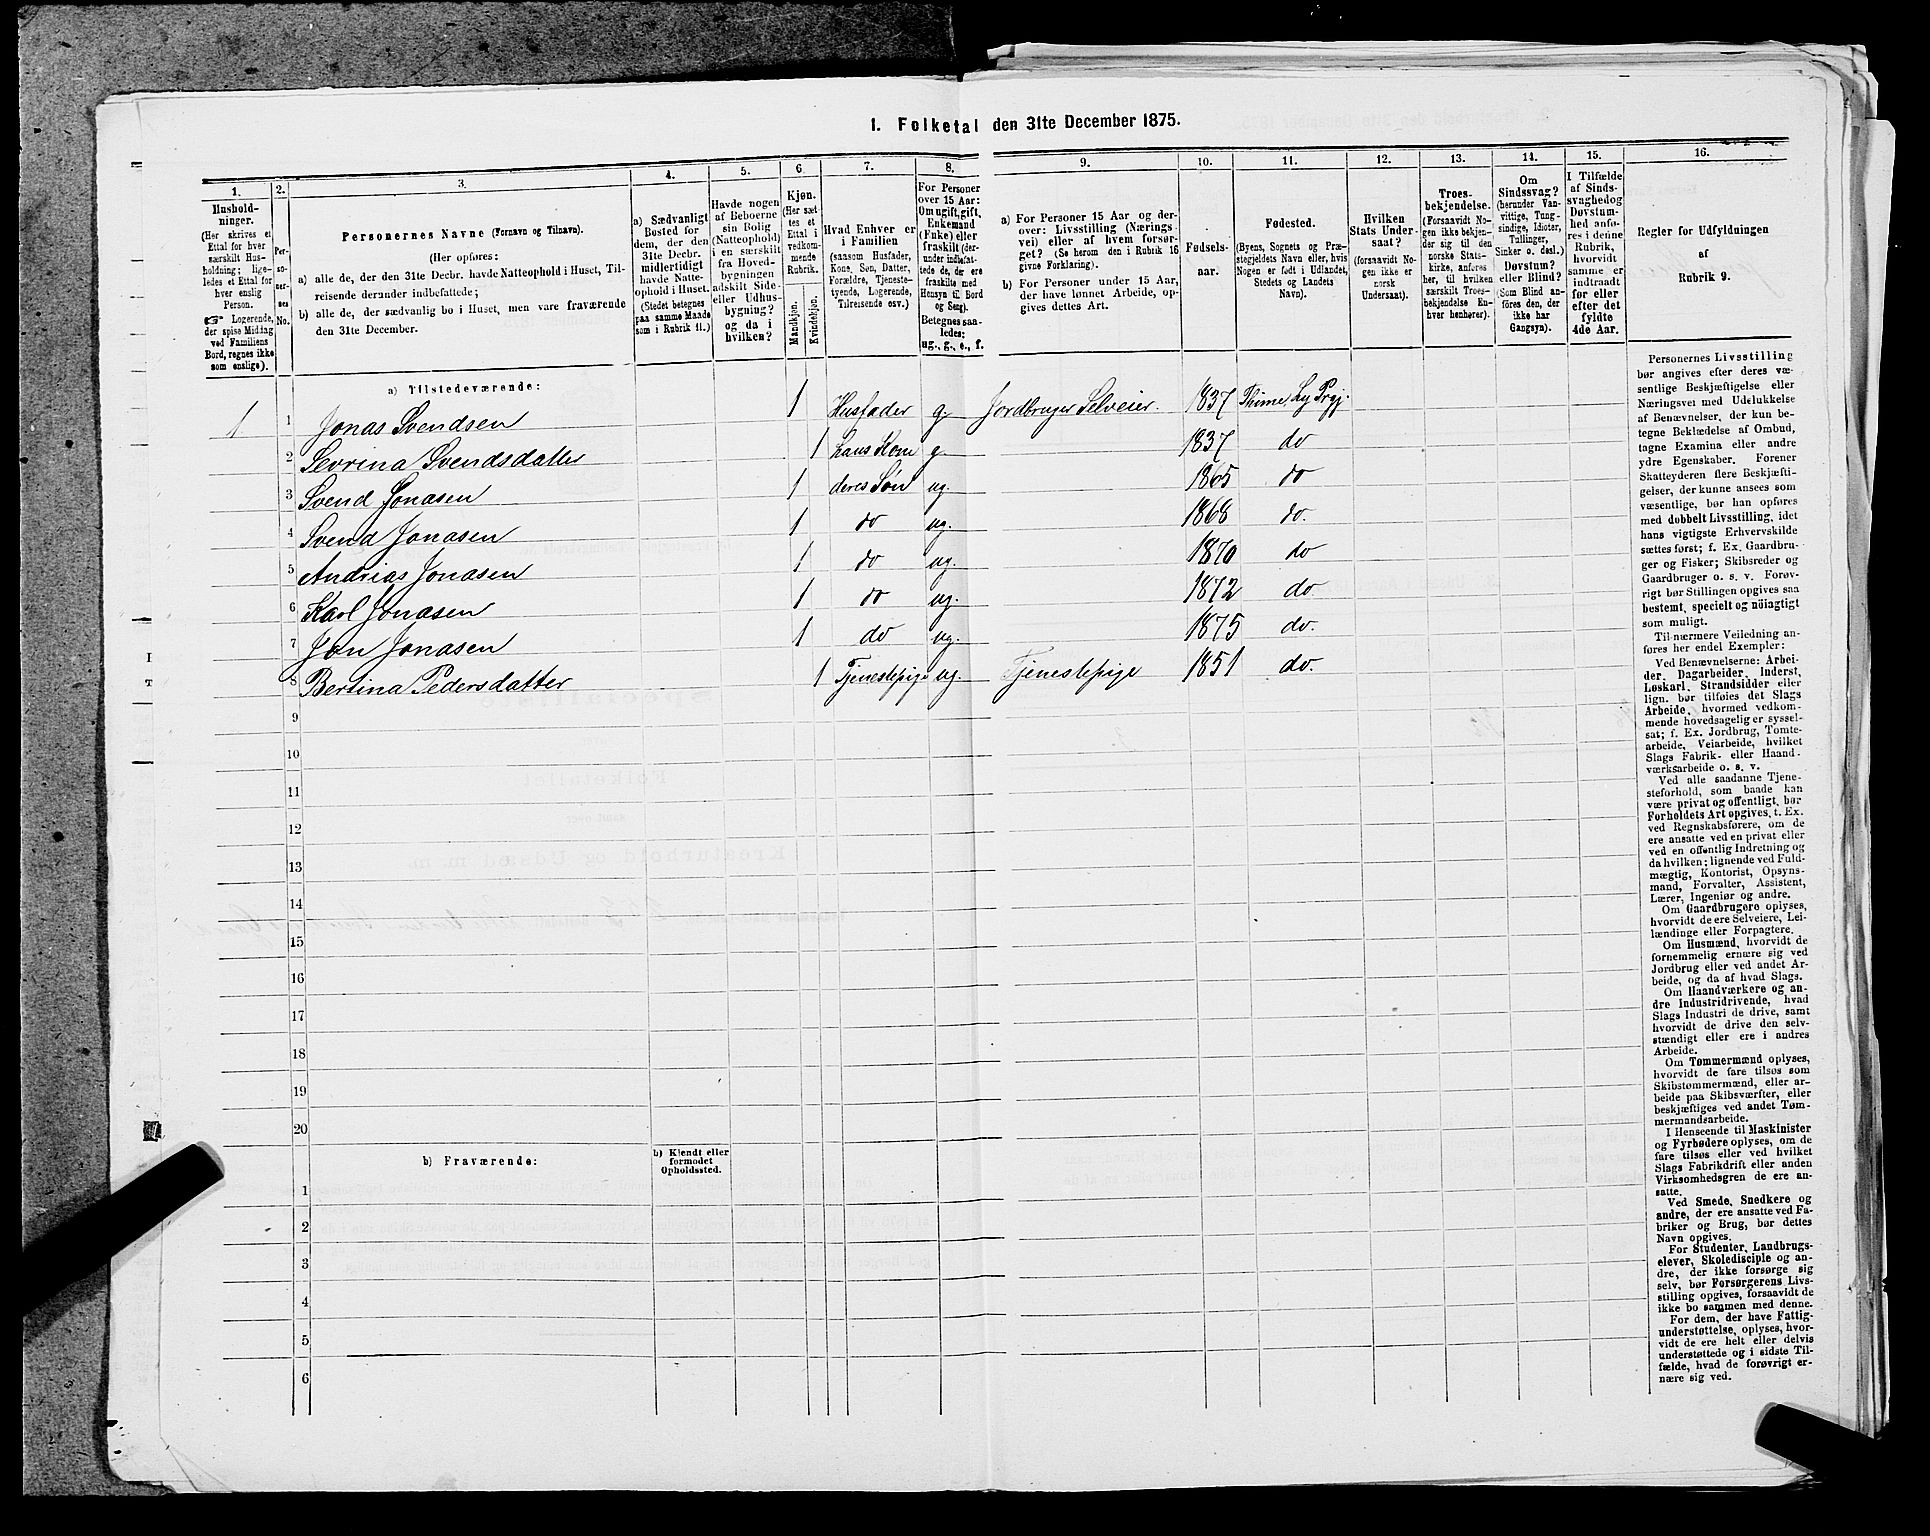 1. Folketal den 31te December 1875.
1. 2. 3. 4. 5. 6. 7. 8. 9. 10. 11. 12. 13. 14. 15. 16.
Hushold-
ninger.
(Her skrives et
Ettal for hver
særskilt Hus-
holdning; lige-
ledes et Ettal for
hver enslig
Person.
☞ Logerende,
der spise Middag
ved Familiens
Bord, regnes ikke
som enslige).
Per-
so-
ner-
nes
No.
Personernes Navne (Fornavn og Tilnavn).
(Her opføres:
a) alle de, der den 31te Decbr. havde Natteophold i Huset, Til-
reisende derunder indbefattede;
b) alle de, der sædvanlig bo i Huset, men vare fraværende
den 31te December.
a) Sædvanligt
Bosted for
dem, der den
31te Decbr.
midlertidigt
havde Natte-
ophold i Huset.
(Stedet betegnes
paa samme Maade
som i Rubrik 11.)
Havde nogen
af Beboerne
sin Bolig
(Natteophold)
i en særskilt
fra Hoved-
bygningen
adskilt Side-
eller Udhus-
bygning?
og da i
hvilken?
Kjøn.
(Her sæt-
tes et
Ettal i
vedkom-
mende
Rubrik.
Mandkjøn.
Kvindekjøn.
Hvad Enhver er
i Familien
(saasom Husfader,
Kone, Søn, Datter,
Forældre, Tjeneste-
tyende, Logerende,
Tilreisende osv.)
For Personer
over 15 Aar:
Om ugift, gift,
Enkemand
(Enke) eller
fraskilt (der-
under indbefat-
tede de, der ere
fraskilte med
Hensyn til Bord
og Seng).
Betegnes saa-
ledes:
ug., g., e., f.
a) For Personer 15 Aar og der-
over: Livsstilling (Nærings-
vei) eller af hvem forsør-
get? (Se herom den i Rubrik 16
givne Forklaring).
b) For Personer under 15 Aar,
der have lønnet Arbeide, op-
gives dettes Art.
Fødsels-
aar.
Fødested.
(Byens, Sognets og Præ-
stegjeldets Navn eller, hvis
Nogen er født i Udlandet,
Stedets og Landets
Navn).
Hvilken
Stats Under-
saat?
(forsaavidt No-
gen ikke er
norsk
Undersaat).
Troes-
bekjendelse.
(Forsaavidt No-
gen ikke bekjen-
der sig til den
norske Stats-
kirke, anføres
her, til hvilken
særskilt Troes-
bekjendelse En-
hver henhører).
Om
Sindssvag?
(herunder Van-
vittige, Tung-
sindige, Idioter,
Tullinger,
Sinker o. desl.)
Døvstum?
eller Blind?
(Som Blind an-
føres den, der
ikke har
Gangsyn).
I Tilfælde
af Sinds-
svaghed og
Døvstum-
hed anfø-
res i denne
Rubrik,
hvorvidt
samme er
indtraadt
før eller
efter det
fyldte
4de Aar.
Regler for Udfyldningen
af
Rubrik 9.
a) Tilstedeværende:
1 1 Jonas Svendsen 1 Husfader g. Jordbruger Selveier. 1837 Thime, Ly Prgj.
2 Sevrina Svendsdatter 1 hans Kone g 1837 do
3 Svend Jonasen 1 deres Søn ug. 1865 do
4 Svend Jonasen 1 do ug. 1868 do.
5 Andrias Jonasen 1 do ug. 1870 do
6 Karl Jonasen 1 do ug. 1872 do
7 Jon Jonasen 1 do ug. 1875 do.
8 Bertina Pedersdatter 1 Tjenestepige ug. Tjenestepige 1851 do.
9
10
11
12
13
14
15
16
17
18
19
20
b) Fraværende:
b) Kjendt eller
formodet
Opholdssted.
1
2
3
4
5
6
Personernes Livsstilling
bør angives efter deres væ-
sentlige Beskjæftigelse eller
Næringsvei med Udelukkelse
af Benævnelser, der kun be-
tegne Beklædelse af Ombud,
tagne Examina eller andre
ydre Egenskaber. Forener
Skatteyderen flere Beskjæfti-
gelser, der kunne ansees som
væsentlige, bør han opføres
med dobbelt Livsstilling, idet
hans vigtigste Erhvervskilde
sættes først; f. Ex. Gaardbru-
ger og Fisker; Skibsreder og
Gaardbruger o. s. v. Forøv-
rigt bør Stillingen opgives saa
bestemt, specielt og nøiagtigt
som muligt.
Til nærmere Veiledning an-
føres her endel Exempler:
Ved Benævnelserne: Arbei-
der, Dagarbeider, Inderst,
Løskarl, Strandsidder eller
lign. bør tilføies det Slags
Arbeide, hvormed vedkom-
mende hovedsagelig er syssel-
sat; f. Ex. Jordbrug, Tomte-
arbeide, Veiarbeide, hvilket
Slags Fabrik- eller Haand-
værksarbeide o. s. v.
Ved alle saadanne Tjene-
steforhold, som baade kan
være privat og offentligt, bør
Forholdets Art opgives, t. Ex.
ved Regnskabsførere, om de
ere ansatte ved en privat eller
ved en offentlig Indretning og
da hvilken; lignende ved Fuld-
mægtig, Kontorist, Opsyns-
mand, Forvalter, Assistent,
Lærer, Ingeniør og andre.
Om Gaardbrugere oplyses,
hvorvidt de ere Selveiere, Lei-
lændinge eller Forpagtere.
Om Husmænd, hvorvidt de
fornemmelig ernære sig ved
Jordbrug eller ved andet Ar-
beide, og da af hvad Slags.
Om Haandværkere og an-
dre Industridrivende, hvad
Slags Industri de drive, samt
hvorvidt de drive den selv-
stændigt eller ere i andres
Arbeide.
Om Tømmermænd oplyses,
hvorvidt de fare tilsøs som
Skibstømmermænd, eller ar-
beide paa Skibsværfter, eller
beskjæftiges ved andet Tøm-
mermandsarbeide.
I Henseende til Maskinister
og Fyrbødere oplyses, om de
fare tilsøs eller ved hvilket
Slags Fabrikdrift eller anden
Virksomhedsgren de ere an-
satte.
Ved Smede, Snedkere og
andre, der ere ansatte ved Fa-
briker og Brug, bør dettes
Navn opgives.
For Studenter, Landbrugs-
elever, Skoledisciple og an-
dre, der ikke forsørge sig
selv, bør Forsørgerens Livs-
stilling opgives, forsaavidt de
ikke bo sammen med denne.
For dem, der have Fattig-
understøttelse, oplyses, hvor-
vidt de ere helt eller delvis
understøttede og i sidste Til-
fælde, hvad de forøvrigt er-
nære sig ved.